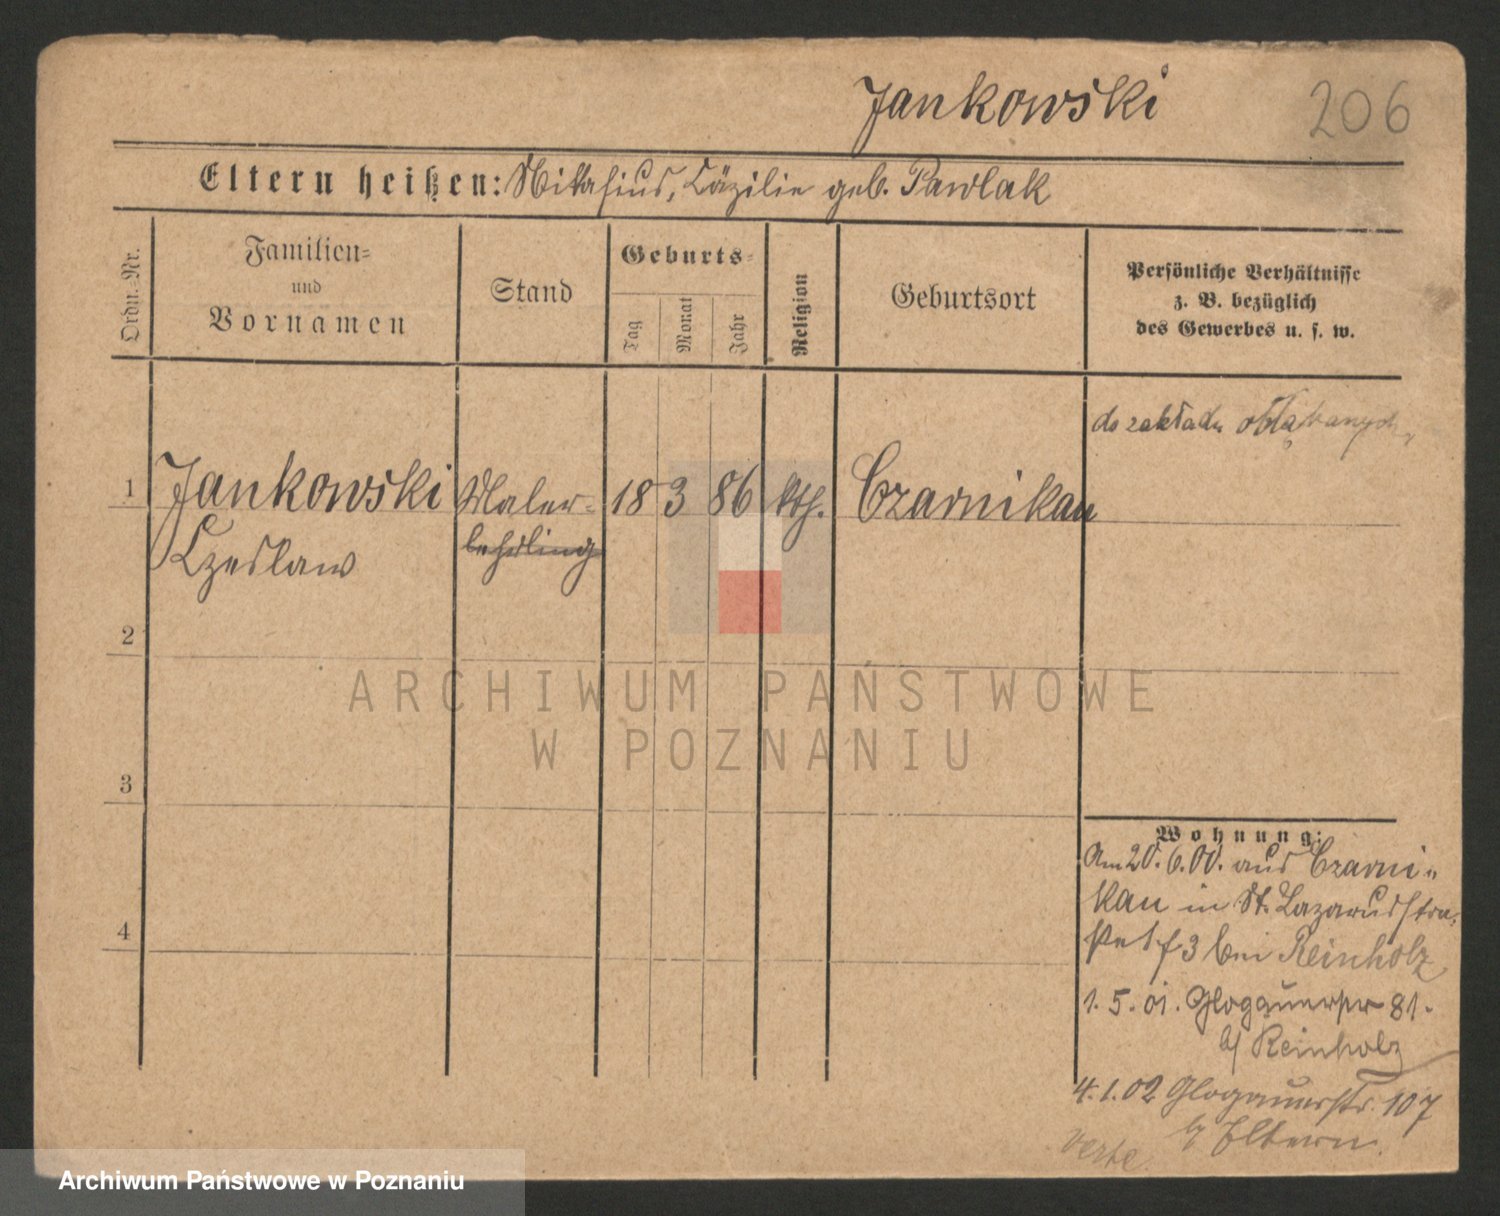 Jankowski
206
Eltern heißen: Nikasius, Cäzilie geb. Pawlak
Ordn.-Nr.
Familien-
und
Vornamen
Stand
Geburts-
Tag
Monat
Jahr
Religion
Geburtsort
Persönliche Verhältnisse
z. B. bezüglich
des Gewerbes u. s. w.
do zakładu obłąkanych
1 Jankowski Maler- 18 3 86 kth. Czarnikau
Czeslaw lehrling
2
3
4
Wohnung:
Am 20.6.00. aus Czarni-
kau in St. Lazarusstra-
3 bei Reinholz
1.5.01. Glogauerstr 81.
b/ Reinholz
4.1.02 Glogauerstr. 107
b/ Eltern.
verte.
ARCHIWUM PAŃSTWOWE
W POZNANIU
Archiwum Państwowe w Poznaniu